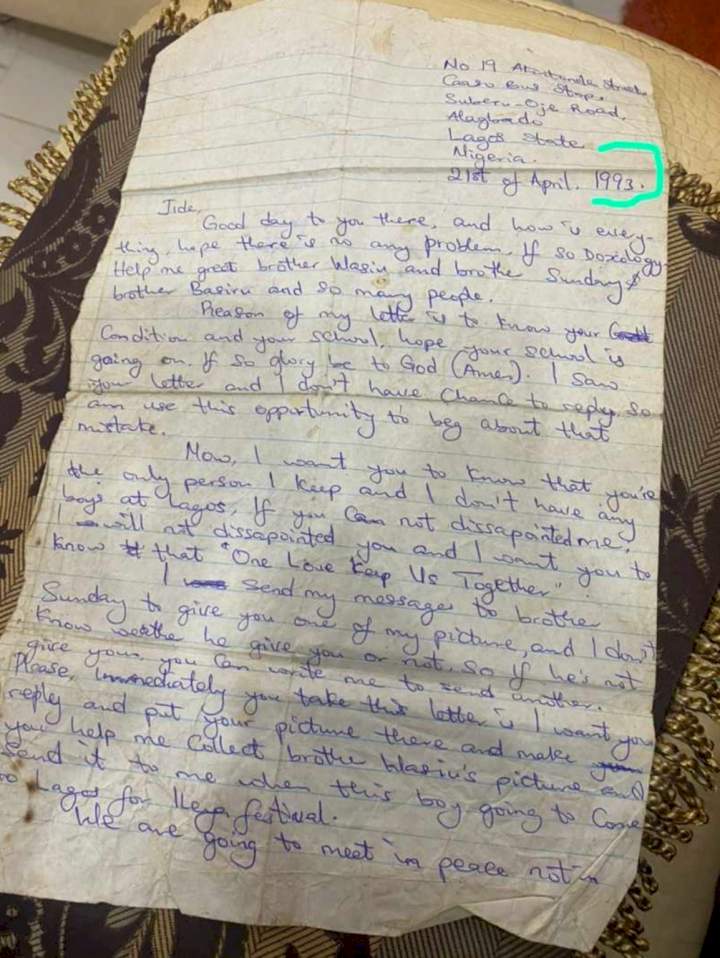 No 19 Street
Bus Stop,
Suberu-Oje Road,
Alagbado
Lagos State
Nigeria.
21st of April. 1993.
Jide,
Good day to you there, and how is every-
thing, hope there is no any problem, If so Doxology.
Help me great brother Wasiu and brothe Sunday &
brother Basiru and so many people.
Reason of my letter is to know your
Condition and your school, hope your school is
going on. If so glory be to God (Amen). I saw
your letter and I don't have chance to reply, so
am use this opportunity to beg about that
mistake.
Now, I want you to know that you're
the only person I keep and I don't have any
boys at Lagos, If you can not dissapointed me,
I will not dissapointed you and I want you to
know that "One Love Keep Us Together".
I send my message to brother
Sunday to give you one of my picture, and I don't
know he give you or not, so if he's not
give your you can write me to send another.
Please, Immediately you take this letter is I want you
reply and put your picture there and make
you help me collect brothe Wasiu's picture and
send it to me when this boy going to come
to Lagos for Ileya festival.
We are going to meet in peace not in